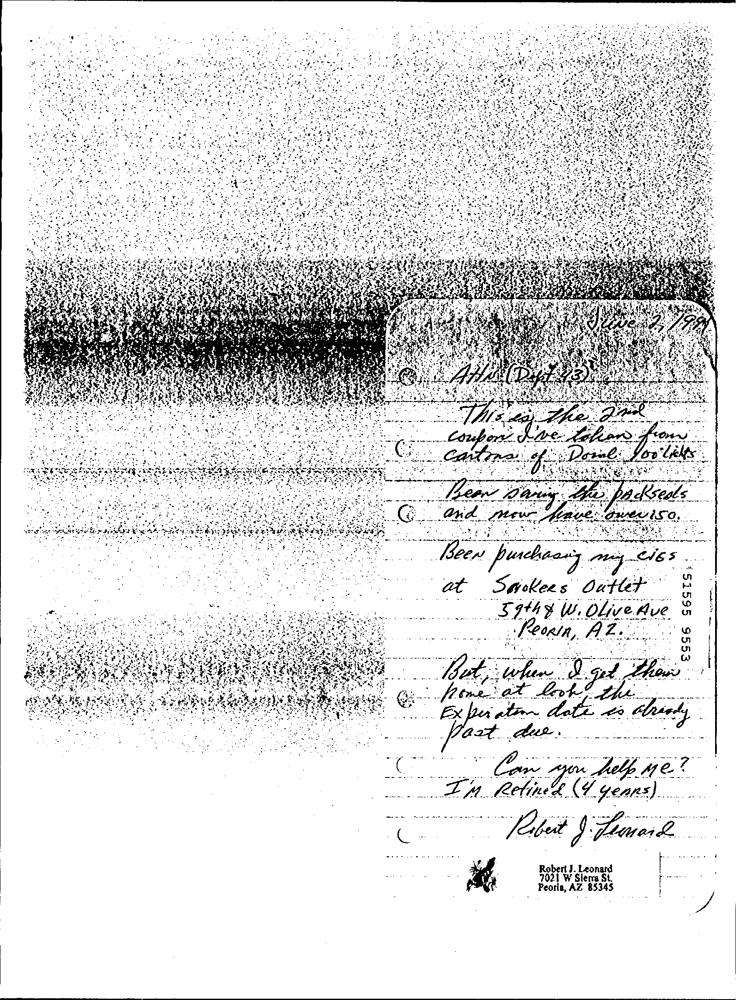 June 2, 199
Attn (Dept 43)
This is the 2nd
coupon I've taken from
cartons of Doral 100 Lights
Been saving the packseals
and now have over 150.
Been purchasing my cigs
at Smokers Outlet
59th & W. Olive Ave
Peoria, AZ.
But, when I get them
home at look the
Expiration date is already
past due.
Can you help me?
I'm Retired (4 years)
Robert J. Leonard
Robert J. Leonard
7021 W Sierra St.
Peoria, AZ 85345
51595 9553